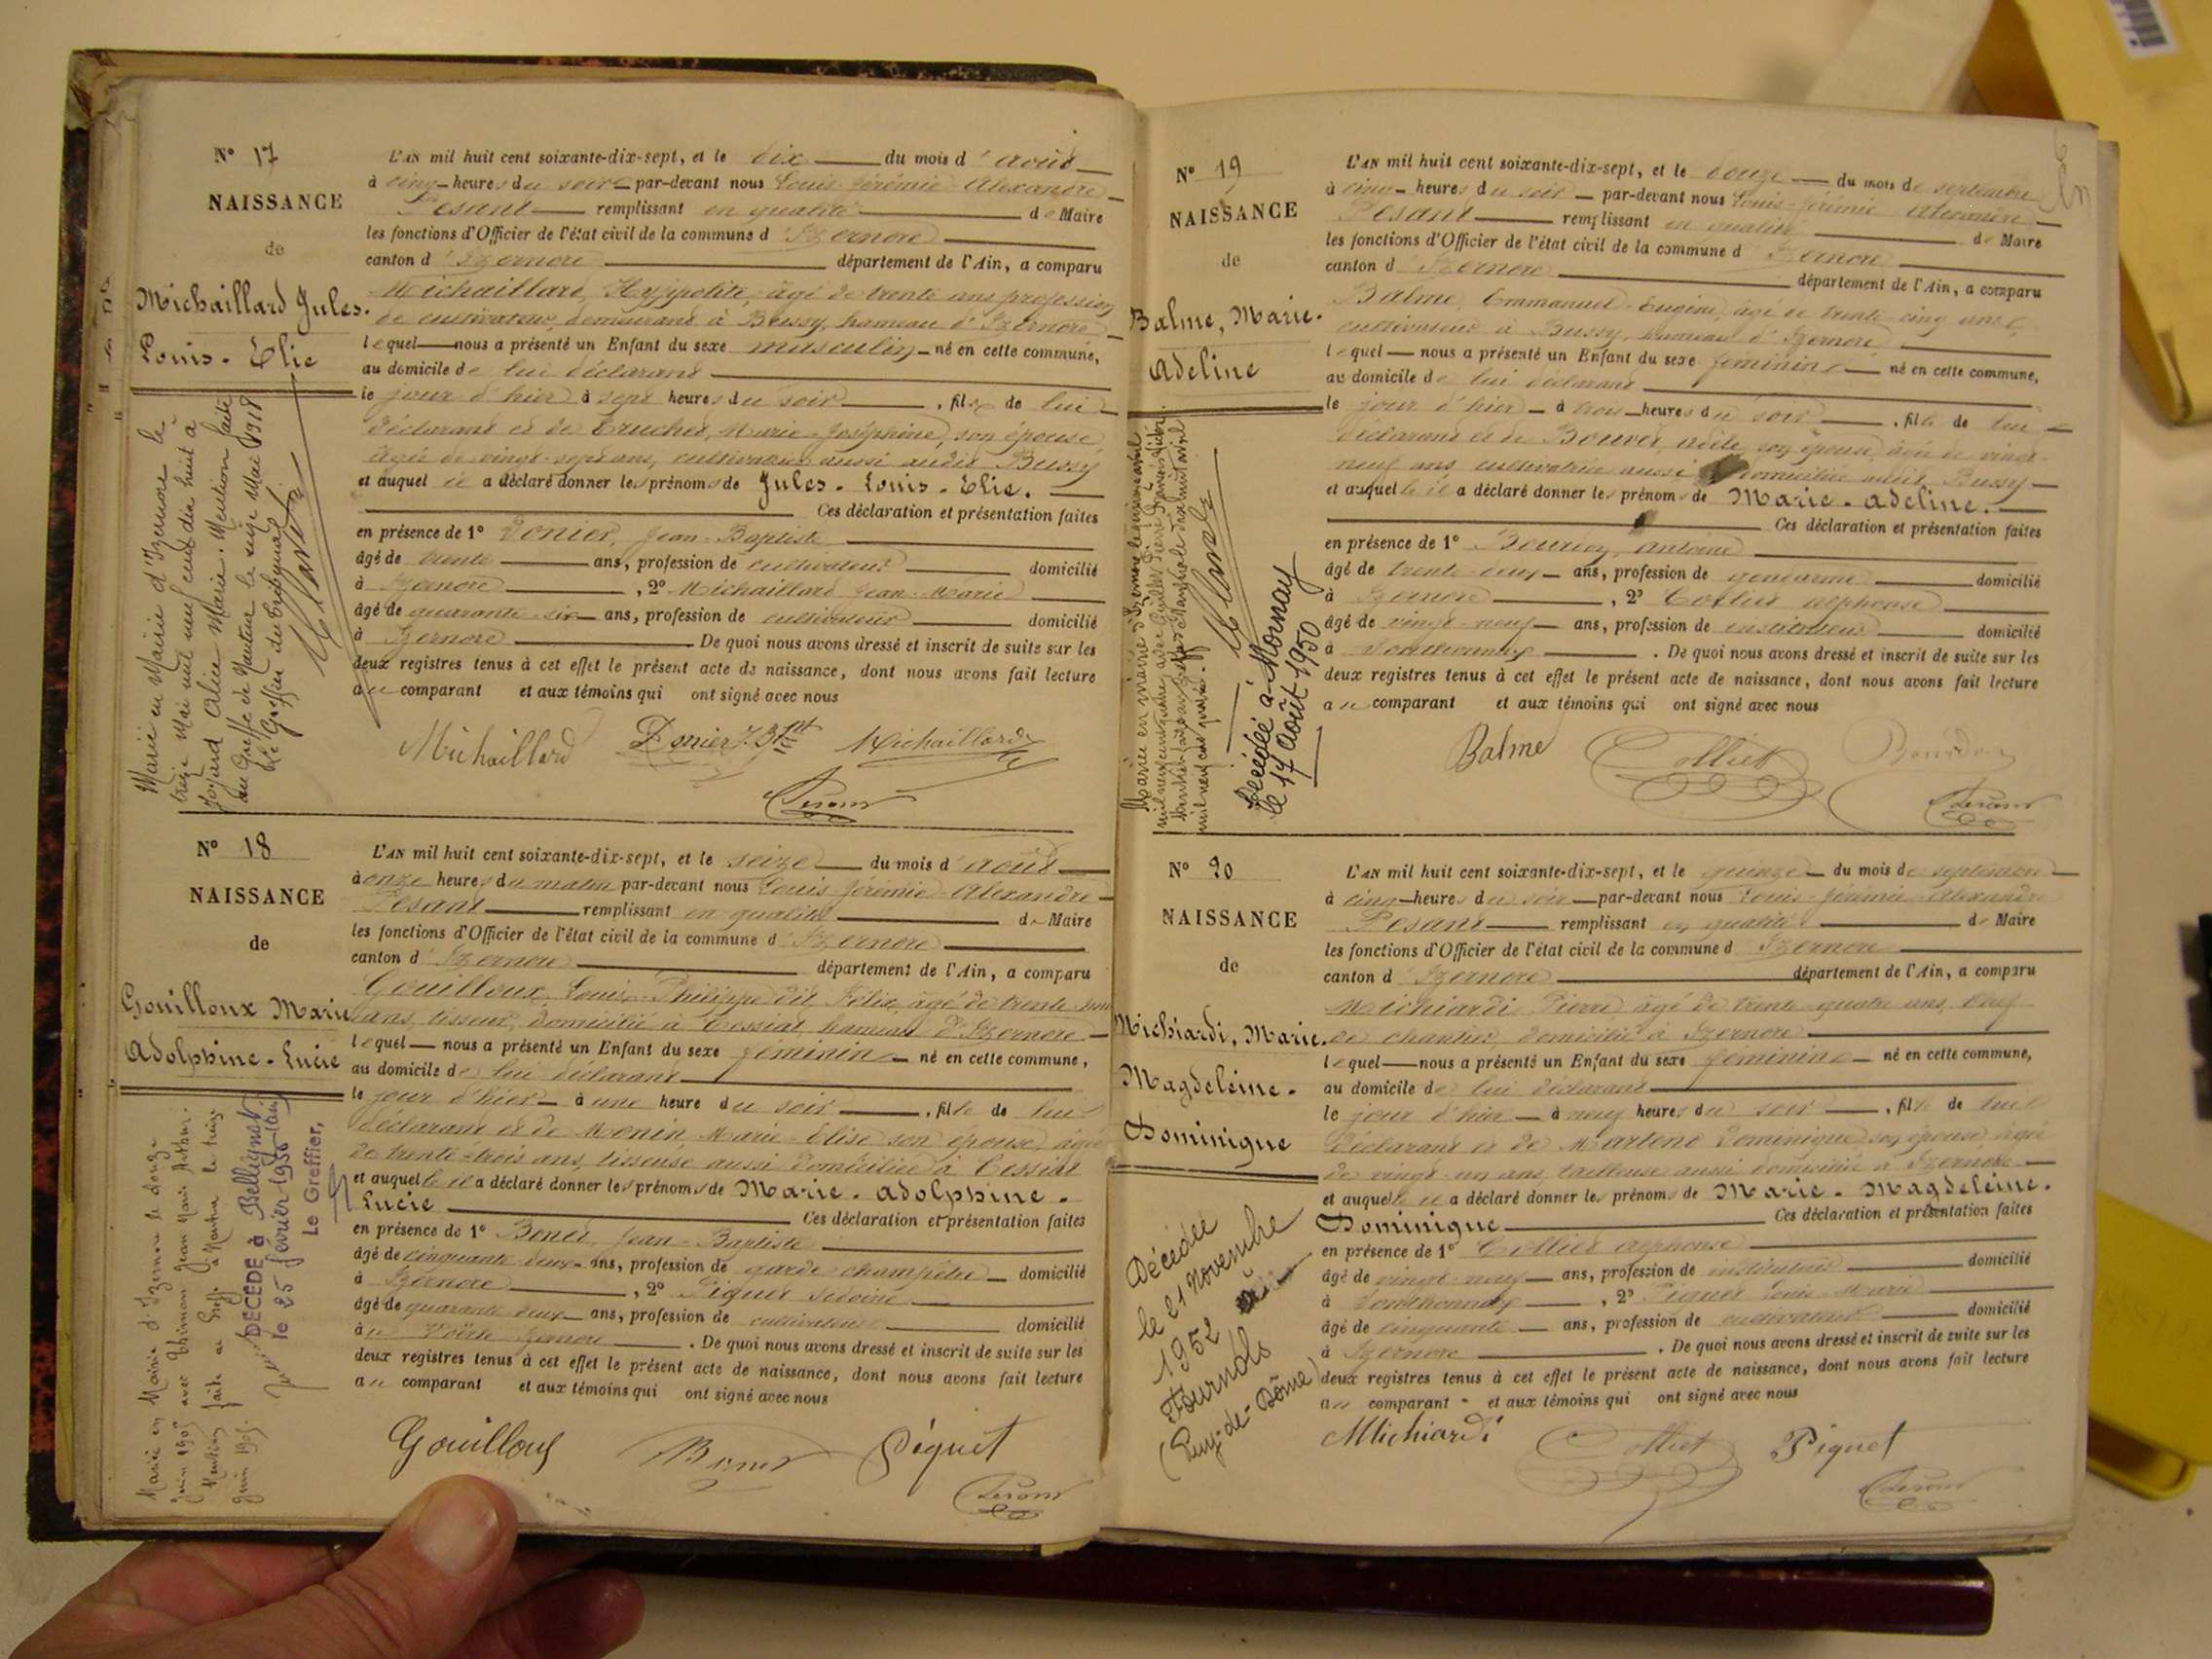 N° 17
NAISSANCE
de
Michaillard Jules.
Louis. Élie
L'AN mil huit cent soixante-dix-sept, et le dix du mois d'août
à cinq heures du soir par-devant nous Louis Jérémie Alexandre
Pesant remplissant en qualité de Maire
les fonctions d'Officier de l'état civil de la commune d'Izernore
canton d'Izernore département de l'Ain, a comparu
Michaillard, Hyppolite, âgé de trente ans profession
de cultivateur, demeurant à Bussy, hameau d'Izernore
lequel nous a présenté un Enfant du sexe masculin né en cette commune,
au domicile de lui déclarant
le jour d'hier à sept heures du soir, fils de lui
déclarant et de Truchet, Marie-Joséphine, son épouse
âgée de vingt-sept ans, cultivatrice aussi audit Bussy
et auquel il a déclaré donner les prénoms de Jules. Louis. Élie.
Ces déclaration et présentation faites
en présence de 1° Donier, Jean-Baptiste
âgé de trente ans, profession de cultivateur domicilié
à Izernore, 2° Michaillard Jean-Marie
âgé de quarante-six ans, profession de cultivateur domicilié
à Izernore. De quoi nous avons dressé et inscrit de suite sur les
deux registres tenus à cet effet le présent acte de naissance, dont nous avons fait lecture
au comparant et aux témoins qui ont signé avec nous
Michaillard Donier J. Bte Michaillard
Pesant
Marié en Mairie d'Izernore le
treize Mai mil neuf cent dix huit à
Joyard Alice Marie. Mention faite
au Greffe de Nantua le seize Mai 1918
Le Greffier du Tribunal
N° 18
NAISSANCE
de
Gouilloux Marie
Adolphine-Lucie
L'AN mil huit cent soixante-dix-sept, et le seize du mois d'août
à onze heures du matin par-devant nous Louis Jérémie Alexandre
Pesant remplissant en qualité de Maire
les fonctions d'Officier de l'état civil de la commune d'Izernore
canton d'Izernore département de l'Ain, a comparu
Gouilloux, Louis-Philippe dit Félix, âgé de trente
ans, tisseur, domicilié à Tessiat hameau d'Izernore
lequel nous a présenté un Enfant du sexe féminin né en cette commune,
au domicile de lui déclarant
le jour d'hier à une heure du soir, fille de lui
déclarant et de Monin Marie Elise son épouse, âgée
de trente-trois ans, tisseuse aussi domiciliée à Tessiat
et auquel il a déclaré donner les prénoms de Marie. Adolphine.
Lucie Ces déclaration et présentation faites
en présence de 1° Benet, Jean-Baptiste
âgé de cinquante-deux ans, profession de garde champêtre domicilié
à Izernore, 2° Piquet
âgé de quarante deux ans, profession de cultivateur domicilié
à Izernore. De quoi nous avons dressé et inscrit de suite sur les
deux registres tenus à cet effet le présent acte de naissance, dont nous avons fait lecture
au comparant et aux témoins qui ont signé avec nous
Gouilloux Benet Piquet
Pesant
Marié en Mairie d'Izernore le douze
Juin 1905 avec Jean Marie Arthur.
Mention faite au Greffe à Nantua le treize
Juin 1905.
DÉCÉDÉ à Bellignat
le 25 février 1956
Le Greffier,
N° 19
NAISSANCE
de
Balme, Marie.
Adeline
L'AN mil huit cent soixante-dix-sept, et le douze du mois de septembre
à cinq heures du soir par-devant nous Louis-Jérémie Alexandre
Pesant remplissant en qualité de Maire
les fonctions d'Officier de l'état civil de la commune d'Izernore
canton d'Izernore département de l'Ain, a comparu
Balme, Emmanuel-Eugène, âgé de trente-cinq ans,
cultivateur à Bussy, hameau d'Izernore
lequel nous a présenté un Enfant du sexe féminin né en cette commune,
au domicile de lui déclarant
le jour d'hier à trois heures du soir, fille de lui
déclarant et de Bouvet, Adèle, son épouse, âgée de vingt-
neuf ans, cultivatrice aussi domiciliée audit Bussy
et auquel il a déclaré donner les prénoms de Marie. Adeline.
Ces déclaration et présentation faites
en présence de 1° Antoine
âgé de trente ans, profession de gendarme domicilié
à Izernore, 2° Colliet Alphonse
âgé de vingt-neuf ans, profession de instituteur domicilié
à Sonthonnax. De quoi nous avons dressé et inscrit de suite sur les
deux registres tenus à cet effet le présent acte de naissance, dont nous avons fait lecture
au comparant et aux témoins qui ont signé avec nous
Balme Colliet
Pesant
Mariée en mairie d'Izernore
Décédée à Mornay
le 17 Août 1950
N° 20
NAISSANCE
de
Michiardi, Marie.
Magdeleine.
Dominique
L'AN mil huit cent soixante-dix-sept, et le quinze du mois de septembre
à cinq heures du soir par-devant nous Louis-Jérémie Alexandre
Pesant remplissant en qualité de Maire
les fonctions d'Officier de l'état civil de la commune d'Izernore
canton d'Izernore département de l'Ain, a comparu
Michiardi Pierre âgé de trente-quatre ans, chef
de chantier, domicilié à Izernore
lequel nous a présenté un Enfant du sexe féminin né en cette commune,
au domicile de lui déclarant
le jour d'hier à neuf heures du soir, fille de lui
déclarant et de Martene Dominique son épouse, âgée
de vingt-un ans, tailleuse aussi domiciliée à Izernore
et auquel il a déclaré donner les prénoms de Marie. Magdeleine.
Dominique Ces déclaration et présentation faites
en présence de 1° Colliet Alphonse
âgé de vingt-neuf ans, profession de instituteur domicilié
à Sonthonnax, 2° Piquet Louis-Marie
âgé de cinquante ans, profession de cultivateur domicilié
à Izernore. De quoi nous avons dressé et inscrit de suite sur les
deux registres tenus à cet effet le présent acte de naissance, dont nous avons fait lecture
au comparant et aux témoins qui ont signé avec nous
Michiardi Colliet Piquet
Pesant
Décédée
le 21 Novembre
1952 à
Fournols
(Puy-de-Dôme)